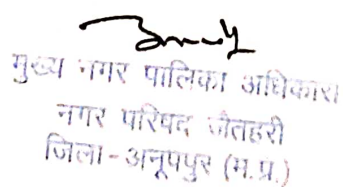 मुख्य नगर पालिका अधिकारी
नगर परिषद जैतहरी
जिला - अनूपपुर (म.प्र.)